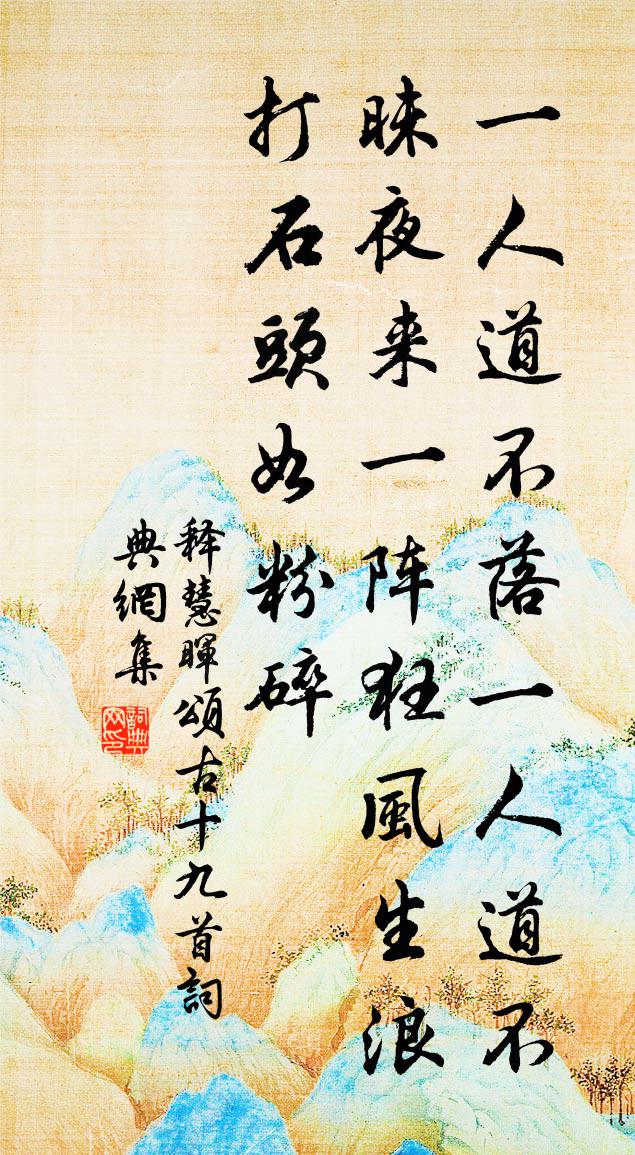 一人道不落一人道不
昧夜来一阵狂風生浪
打石頭如粉碎
释慧暉頌古十九首詞
典網集
詞典網印